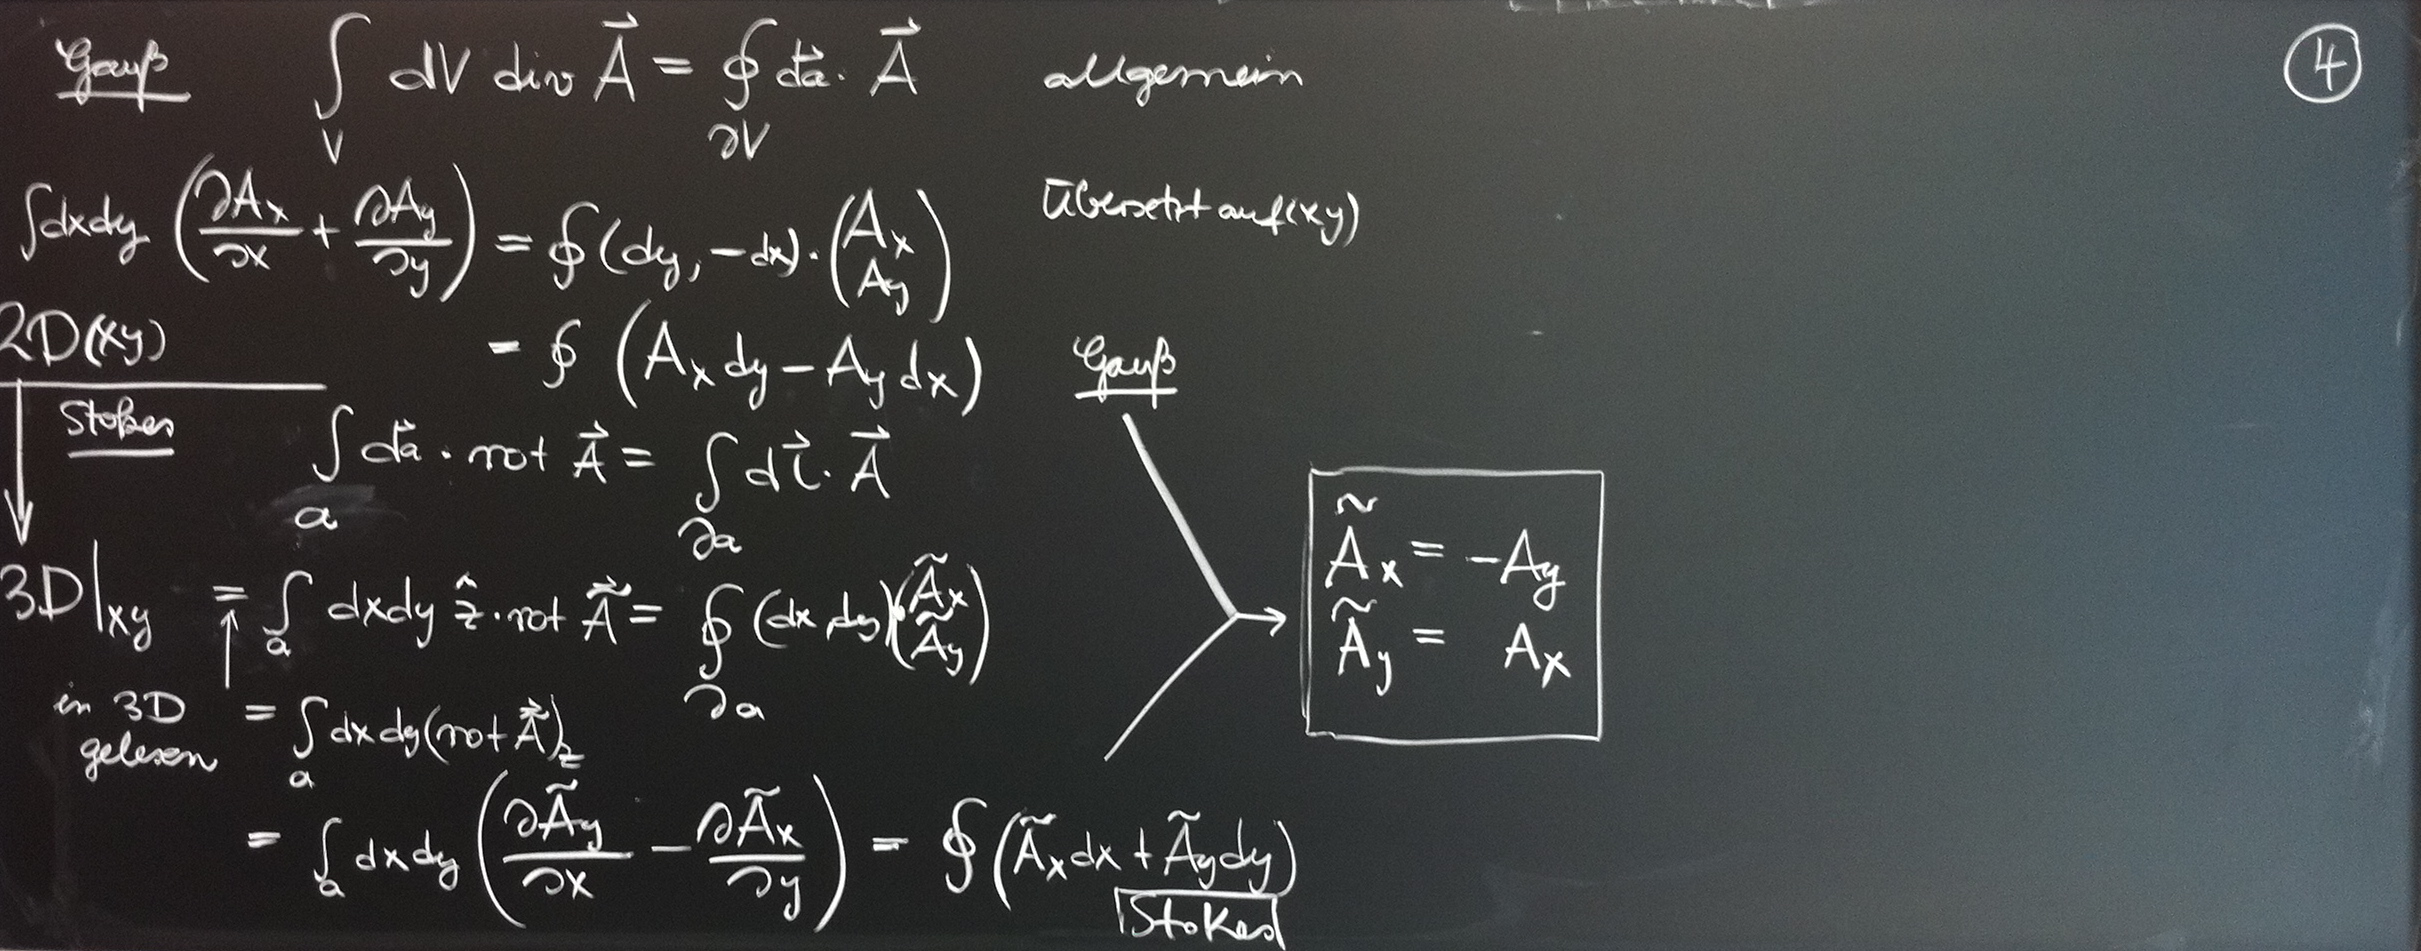 Gauß ∫_V dV div A⃗ = ∮_∂V da⃗ · A⃗ allgemein ④
∫dxdy (∂Ax/∂x + ∂Ay/∂y) = ∮(dy, -dx)·(Ax Ay) Übersetzt auf (xy)
2D(xy) = ∮ (Ax dy - Ay dx) Gauß
Stokes ∫_a da⃗ · rot A⃗ = ∫_∂a dl⃗ · A⃗
Ãx = -Ay
Ãy = Ax
3D|xy = ∫_a dxdy ẑ · rot Ã⃗ = ∮_∂a (dx, dy)·(Ãx Ãy)
in 3D gelesen = ∫_a dxdy(rot Ã⃗)z
= ∫_a dxdy (∂Ãy/∂x - ∂Ãx/∂y) = ∮ (Ãx dx + Ãy dy)
Stokes